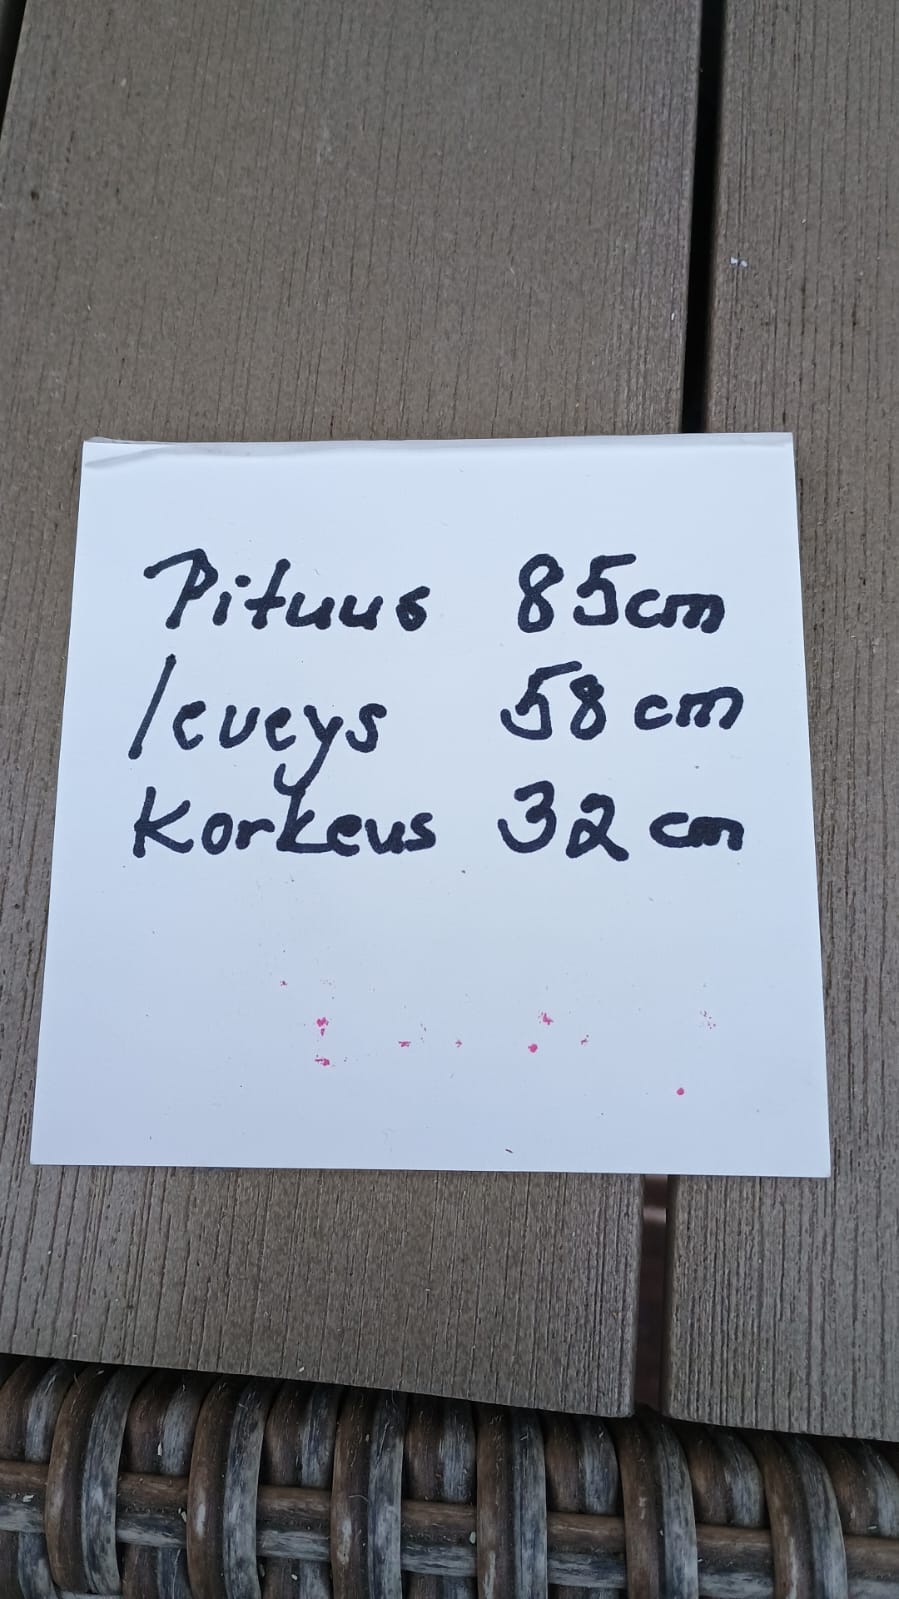 Pituus 85cm
leveys 58 cm
Korkeus 32 cm